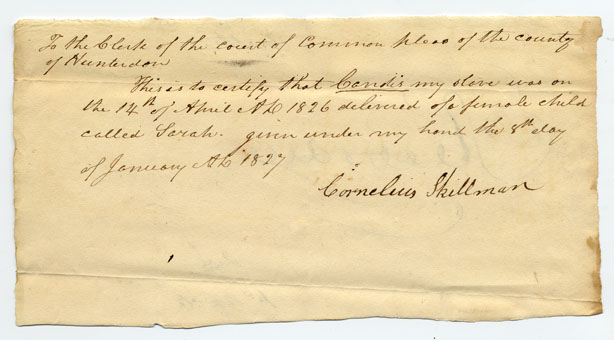 To the Clerk of the court of Common pleas of the county
of Hunterdon
This is to certify that Candis my slave was on
the 14th of April AD 1826 delivered of a female child
called Sarah. given under my hand the 8th day
of January AD 1827
Cornelius Skillman